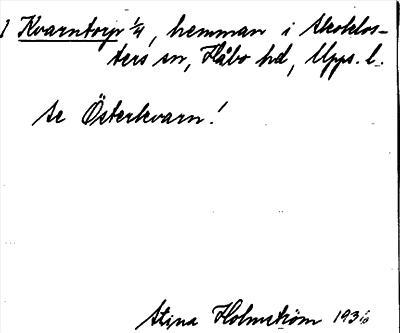 1 Kvarntorp 1/4, hemman i Skoklos-
ters sn, Håbo hd, Upps. l.
se Österkvarn!
Stina Holmström 1936